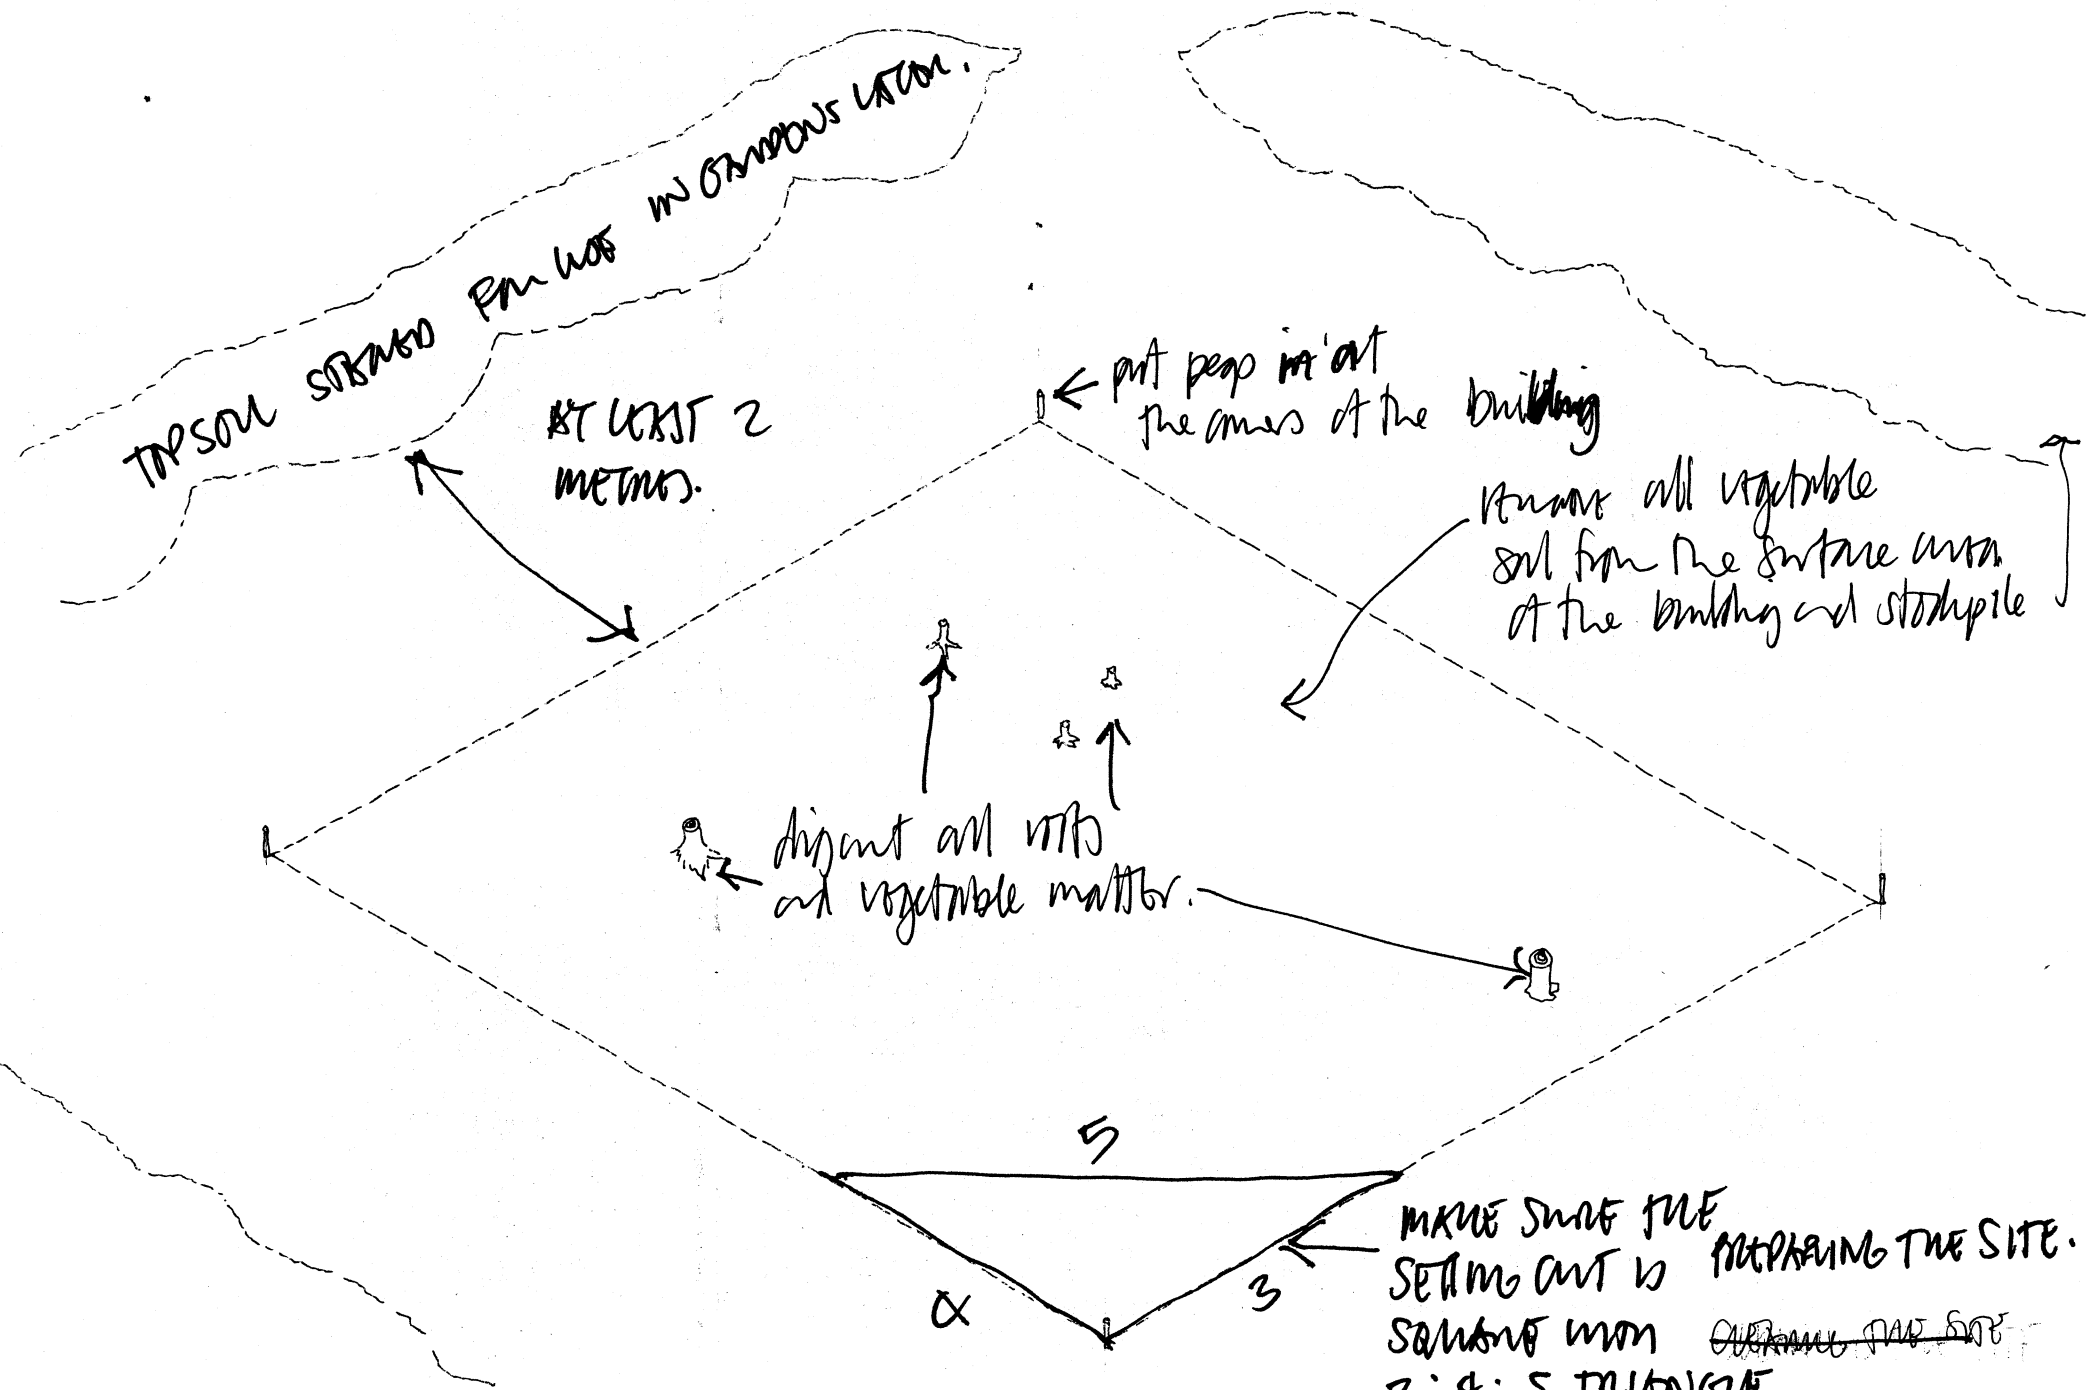 TOPSOIL STORED FOR USE IN GARDENS LATER.
AT LEAST 2
METRES.
put pegs in at
the corners of the building
remove all vegetable
soil from the surface area
of the building and stockpile
dig out all roots
and vegetable matter.
5
4
3
MAKE SURE THE
SETTING OUT IS
SQUARE WITH
3:4:5 TRIANGLE
PREPARING THE SITE.
CLEARING THE SITE